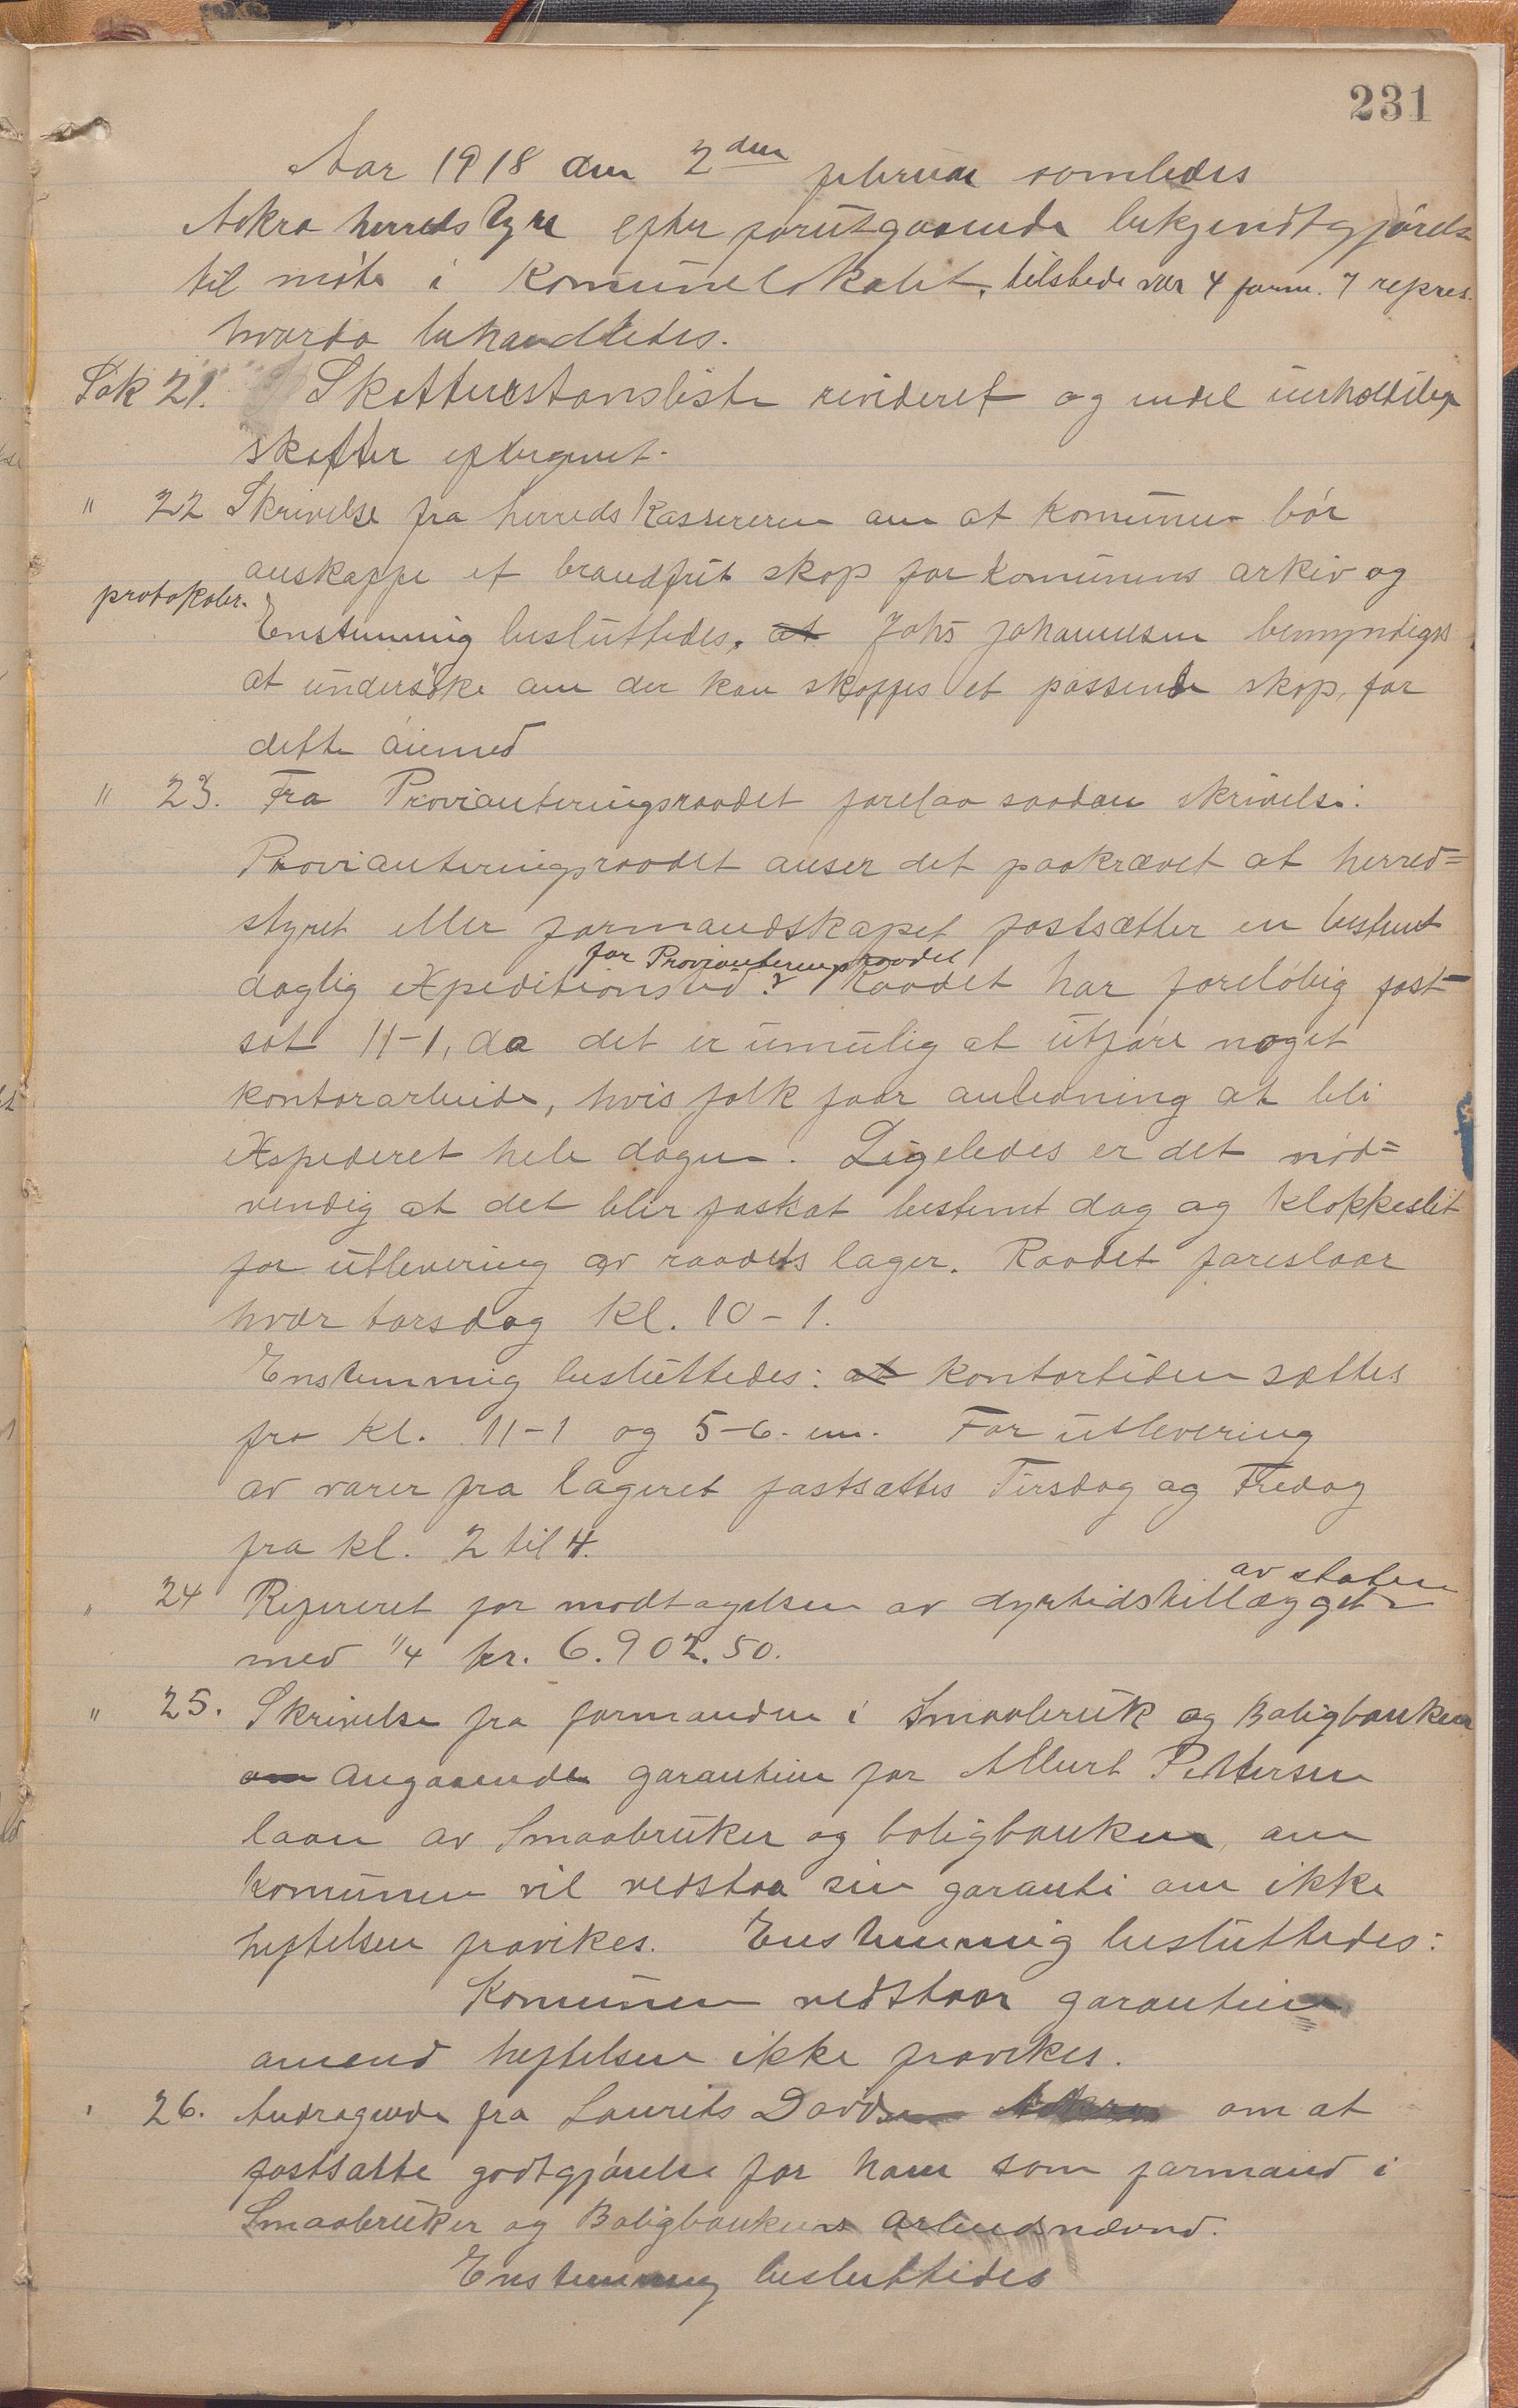 231
Aar 1918 den 2den februar samledes
Aakra herredstyre efter forutgaaende bekjendtgjørelse
til møte i Komunelokalet, tilstede var 4 form. 7 repres.
hvorda behandledes.
Sak 21. Skatterestansliste revideret og endel uerholdelige
skatter eftergivet.
" 22 Skrivelse fra herredskassereren om at komunen bør
anskaffe et brandfrit skap for komunens arkiv og
protokoler.
Enstemmig besluttedes, at Johs Johannesen bemyndiges
at undersøke om der kan skaffes et passende skap, for
dette øiemed
" 23. Fra Provianteringsraadet forelaa saadan skrivelse:
Provianteringsraadet anser det paakrævet at herred=
styret eller formandskapet fastsætter en bestemt
for Provianteringsraadet
daglig expeditionstid. Raadet har foreløbig fast=
sat 11-1, da det er umulig at utføre noget
kontorarbeide, hvis folk faar anledning at bli
expederet hele dagen. Ligeledes er det nød=
vendig at det blir fastsat bestemt dag og klokkeslet
for utlevering av raadets lager. Raadet foreslaar
hver torsdag kl. 10-1.
Enstemmig besluttedes: at kontortiden sættes
fra kl. 11-1 og 5-6. em. For utlevering
av varer fra lageret fastsættes Tirsdag og Fredag
fra kl. 2 til 4.
av staten
" 24 Refereret for modtagelsen av dyrtidstillægget
med 1/4 kr. 6.902.50.
" 25. Skrivelse fra formanden i Smaabruk og Boligbanken
om angaaende garantien for Albert Pettersen
laan av Smaabruker og boligbanken, om
komunen vil vedstaa sin garanti om ikke
heftelsen fravikes. Enstemmig besluttedes:
Komunen vedstaar garantien
omend heftelsen ikke fravikes.
" 26. Andragende fra Laurits Davidsen om at
fastsætte godtgjørelse for ham som formand i
Smaabruker og Boligbankens arbeidsnævnd.
Enstemmig besluttedes